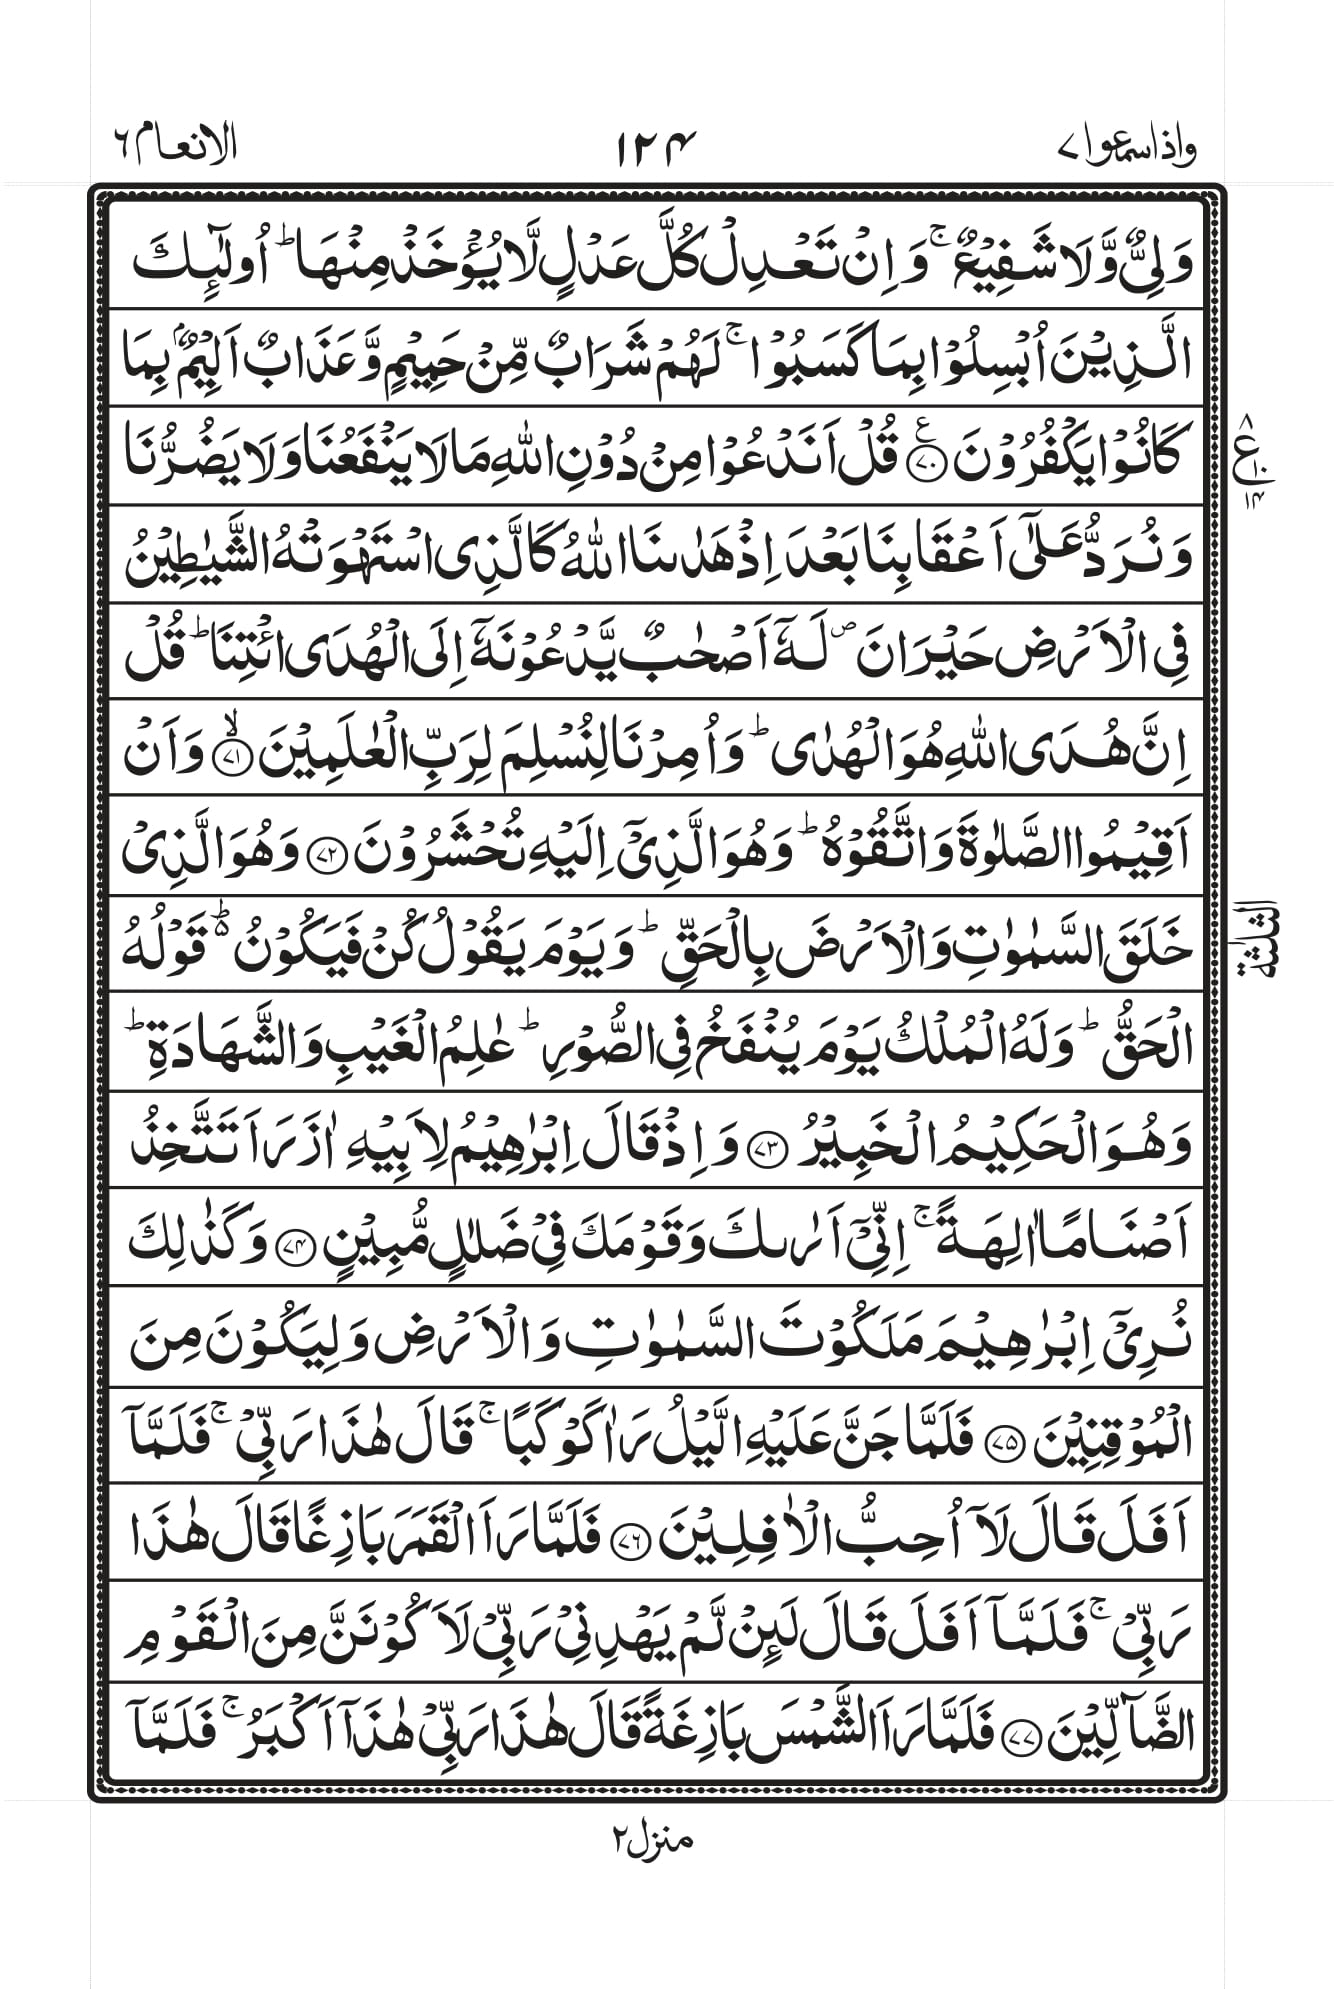 واذاسمعوا ٧
١٢٤
الانعام ٦
وَلِيٌّ وَّلَا شَفِيْعٌ ۚ وَاِنْ تَعْدِلْ كُلَّ عَدْلٍ لَّا يُؤْخَذْ مِنْهَا ؕ اُولٰٓئِكَ
الَّذِيْنَ اُبْسِلُوْا بِمَا كَسَبُوْا ۚ لَهُمْ شَرَابٌ مِّنْ حَمِيْمٍ وَّعَذَابٌ اَلِيْمٌۢ بِمَا
كَانُوْا يَكْفُرُوْنَ ﴿٧٠﴾ ع قُلْ اَنَدْعُوْا مِنْ دُوْنِ اللّٰهِ مَا لَا يَنْفَعُنَا وَلَا يَضُرُّنَا
٨
ع
١٠
١٤
وَنُرَدُّ عَلٰٓى اَعْقَابِنَا بَعْدَ اِذْ هَدٰىنَا اللّٰهُ كَالَّذِى اسْتَهْوَتْهُ الشَّيٰطِيْنُ
فِى الْاَرْضِ حَيْرَانَ ۪ لَهٗۤ اَصْحٰبٌ يَّدْعُوْنَهٗۤ اِلَى الْهُدَى ائْتِنَا ؕ قُلْ
اِنَّ هُدَى اللّٰهِ هُوَ الْهُدٰى ؕ وَاُمِرْنَا لِنُسْلِمَ لِرَبِّ الْعٰلَمِيْنَ ﴿٧١﴾ ۙ وَاَنْ
اَقِيْمُوا الصَّلٰوةَ وَاتَّقُوْهُ ؕ وَهُوَ الَّذِيْۤ اِلَيْهِ تُحْشَرُوْنَ ﴿٧٢﴾ وَهُوَ الَّذِيْ
خَلَقَ السَّمٰوٰتِ وَالْاَرْضَ بِالْحَقِّ ؕ وَيَوْمَ يَقُوْلُ كُنْ فَيَكُوْنُ ؕ۬ قَوْلُهُ
الثلثة
الْحَقُّ ؕ وَلَهُ الْمُلْكُ يَوْمَ يُنْفَخُ فِى الصُّوْرِ ؕ عٰلِمُ الْغَيْبِ وَالشَّهَادَةِ ؕ
وَهُوَ الْحَكِيْمُ الْخَبِيْرُ ﴿٧٣﴾ وَاِذْ قَالَ اِبْرٰهِيْمُ لِاَبِيْهِ اٰزَرَ اَتَتَّخِذُ
اَصْنَامًا اٰلِهَةً ۚ اِنِّيْۤ اَرٰىكَ وَقَوْمَكَ فِيْ ضَلٰلٍ مُّبِيْنٍ ﴿٧٤﴾ وَكَذٰلِكَ
نُرِيْۤ اِبْرٰهِيْمَ مَلَكُوْتَ السَّمٰوٰتِ وَالْاَرْضِ وَلِيَكُوْنَ مِنَ
الْمُوْقِنِيْنَ ﴿٧٥﴾ فَلَمَّا جَنَّ عَلَيْهِ الَّيْلُ رَاٰ كَوْكَبًا ۚ قَالَ هٰذَا رَبِّيْ ۚ فَلَمَّاۤ
اَفَلَ قَالَ لَاۤ اُحِبُّ الْاٰفِلِيْنَ ﴿٧٦﴾ فَلَمَّا رَاَ الْقَمَرَ بَازِغًا قَالَ هٰذَا
رَبِّيْ ۚ فَلَمَّاۤ اَفَلَ قَالَ لَئِنْ لَّمْ يَهْدِنِيْ رَبِّيْ لَاَكُوْنَنَّ مِنَ الْقَوْمِ
الضَّآلِّيْنَ ﴿٧٧﴾ فَلَمَّا رَاَ الشَّمْسَ بَازِغَةً قَالَ هٰذَا رَبِّيْ هٰذَاۤ اَكْبَرُ ۚ فَلَمَّاۤ
منزل ٢